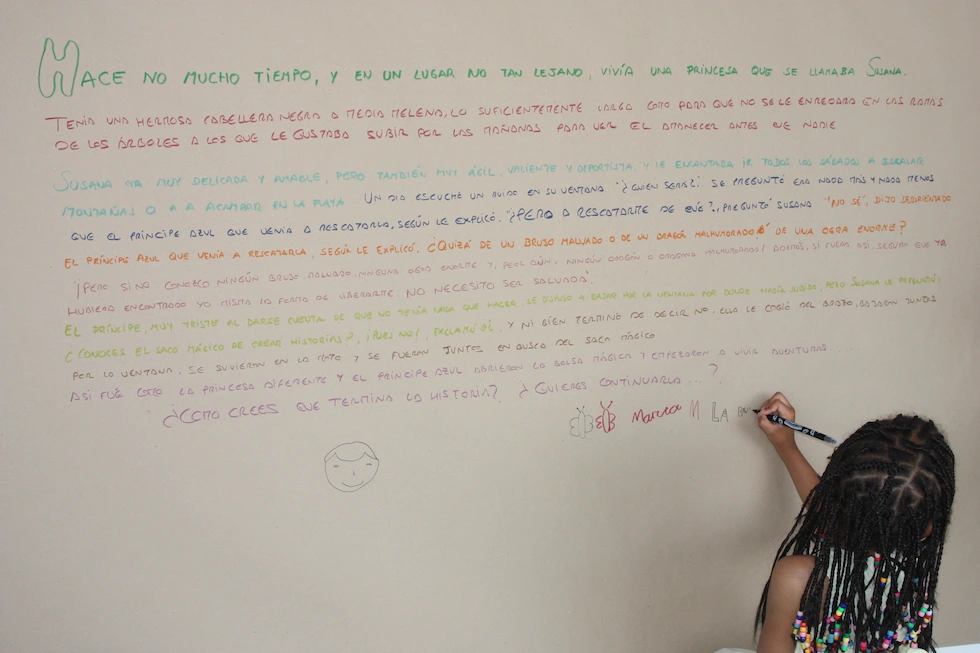 HACE NO MUCHO TIEMPO, Y EN UN LUGAR NO TAN LEJANO, VIVÍA UNA PRINCESA QUE SE LLAMABA SUSANA.
TENÍA UNA HERMOSA CABELLERA NEGRA A MEDIA MELENA, LO SUFICIENTEMENTE LARGA COMO PARA QUE NO SE LE ENREDARA EN LAS RAMAS
DE LOS ÁRBOLES A LOS QUE LE GUSTABA SUBIR POR LAS MAÑANAS PARA VER EL AMANECER ANTES QUE NADIE
SUSANA ERA MUY DELICADA Y AMABLE, PERO TAMBIÉN MUY ÁGIL, VALIENTE Y DEPORTISTA, Y LE ENCANTABA IR TODOS LOS SÁBADOS A ESCALAR
MONTAÑAS O A A ACAMPAR EN LA PLAYA UN DIA ESCUCHÓ UN RUIDO EN SU VENTANA "¿QUIEN SERÁ?". SE PREGUNTÓ ERA NADA MÁS Y NADA MENOS
QUE EL PRÍNCIPE AZUL QUE VENÍA A RESCATARLA, SEGÚN LE EXPLICÓ. "¿PERO A RESCATARTE DE QUÉ?", PREGUNTÓ SUSANA "NO SÉ", DIJO
EL PRÍNCIPE AZUL QUE VENÍA A RESCATARLA, SEGÚN LE EXPLICÓ. ¿QUIZÁ DE UN BRUJO MALVADO O DE UN DRAGÓN MALHUMORADO Ó DE UNA OGRA ENORME?
¡PERO SI NO CONOZCO NINGÚN BRUJO MALVADO, NINGUNA OGRA ENORME Y, PEOR AÚN, NINGÚN DRAGÓN O DRAGONA MALHUMORADOS! ADEMÁS, SI FUERA ASÍ, SEGURO QUE YA
HUBIERA ENCONTRADO YO MISMA LA FORMA DE LIBERARME. NO NECESITO SER SALVADA.
EL PRÍNCIPE, MUY TRISTE AL DARSE CUENTA DE QUE NO TENÍA NADA QUE HACER, SE DISPUSO A BAJAR POR LA VENTANA POR DONDE HABÍA SUBIDO, PERO SUSANA LE PREGUNTÓ:
¿CONOCES EL SACO MÁGICO DE CREAR HISTORIAS?, ¡PUES NO!, EXCLAMÓ ÉL, Y NI BIEN TERMINÓ DE DECIR NO, ELLA LE COGIÓ DEL BRAZO, BAJARON JUNTOS
POR LA VENTANA, SE SUBIERON EN LA MOTO Y SE FUERON JUNTOS EN BUSCA DEL SACO MÁGICO
ASI FUE COMO LA PRINCESA DIFERENTE Y EL PRÍNCIPE AZUL ABRIERON LA BOLSA MÁGICA Y EMPEZARON A VIVIR AVENTURAS ...
¿COMO CREES QUE TERMINA LA HISTORIA? ¿QUIERES CONTINUARLA...?
M LA